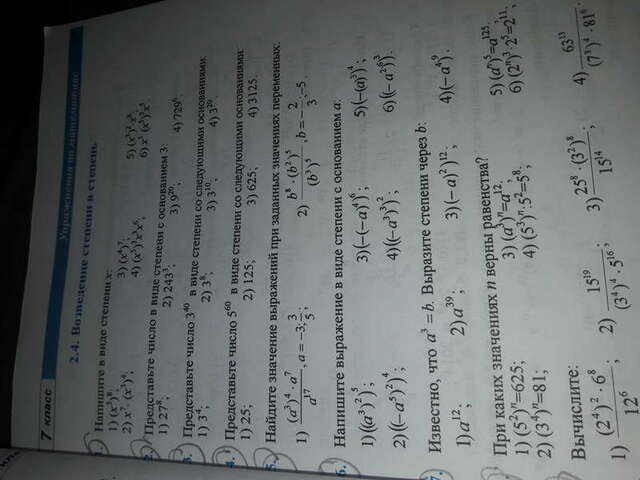 7 класс
Упражнения по математике
2.4. Возведение степени в степень
1. Напишите в виде степени x:
1) (x³)⁸; 3) (x⁴)⁷; 5) (x³)²·x⁸;
2) x⁷·(x³)⁴; 4) (x⁵)³x³x⁶; 6) x⁵ (x³)⁵x⁵
2. Представьте число в виде степени с основанием 3:
1) 27⁸; 2) 243³; 3) 9²⁰; 4) 729⁶.
3. Представьте число 3⁴⁰ в виде степени со следующими основаниями:
1) 3⁴; 2) 3⁸; 3) 3¹⁰; 4) 3²⁰.
4. Представьте число 5⁶⁰ в виде степени со следующими основаниями:
1) 25; 2) 125; 3) 625; 4) 3125.
5. Найдите значение выражений при заданных значениях переменных:
1) (a³)⁴·a⁷/a¹⁷, a = –3; 3/5; 2) b⁸·(b²)⁵/(b³)⁵, b = –2/3; –5.
6. Напишите выражение в виде степени с основанием a:
1) ((a³)²)⁵; 3) (–(–a)⁴)⁶; 5) (–(a)³)⁴;
2) ((–a⁵)²)⁴; 4) ((–a³)³)²; 6) ((–a²⁶)³
7. Известно, что a³ = b. Выразите степени через b:
1) a¹²; 2) a³⁹; 3) (–a)²)¹²; 4) (–a⁴⁹.
При каких значениях n верны равенства?
1) (5²)ⁿ=625; 3) (a³)ⁿ=a¹²; 5) (aⁿ)⁵=a¹²⁵;
2) (3⁴)ⁿ=81; 4) (5³)ⁿ·5²=5⁸; 6) (2ⁿ)³·2⁵=2¹¹;
Вычислите:
1) (2⁴)²·6⁸/12⁶; 2) 15¹⁹/(3⁴)⁴·5¹⁶; 3) 25⁸·(3²)⁸/15¹⁴; 4) 63¹³/(7³)⁴·81⁶